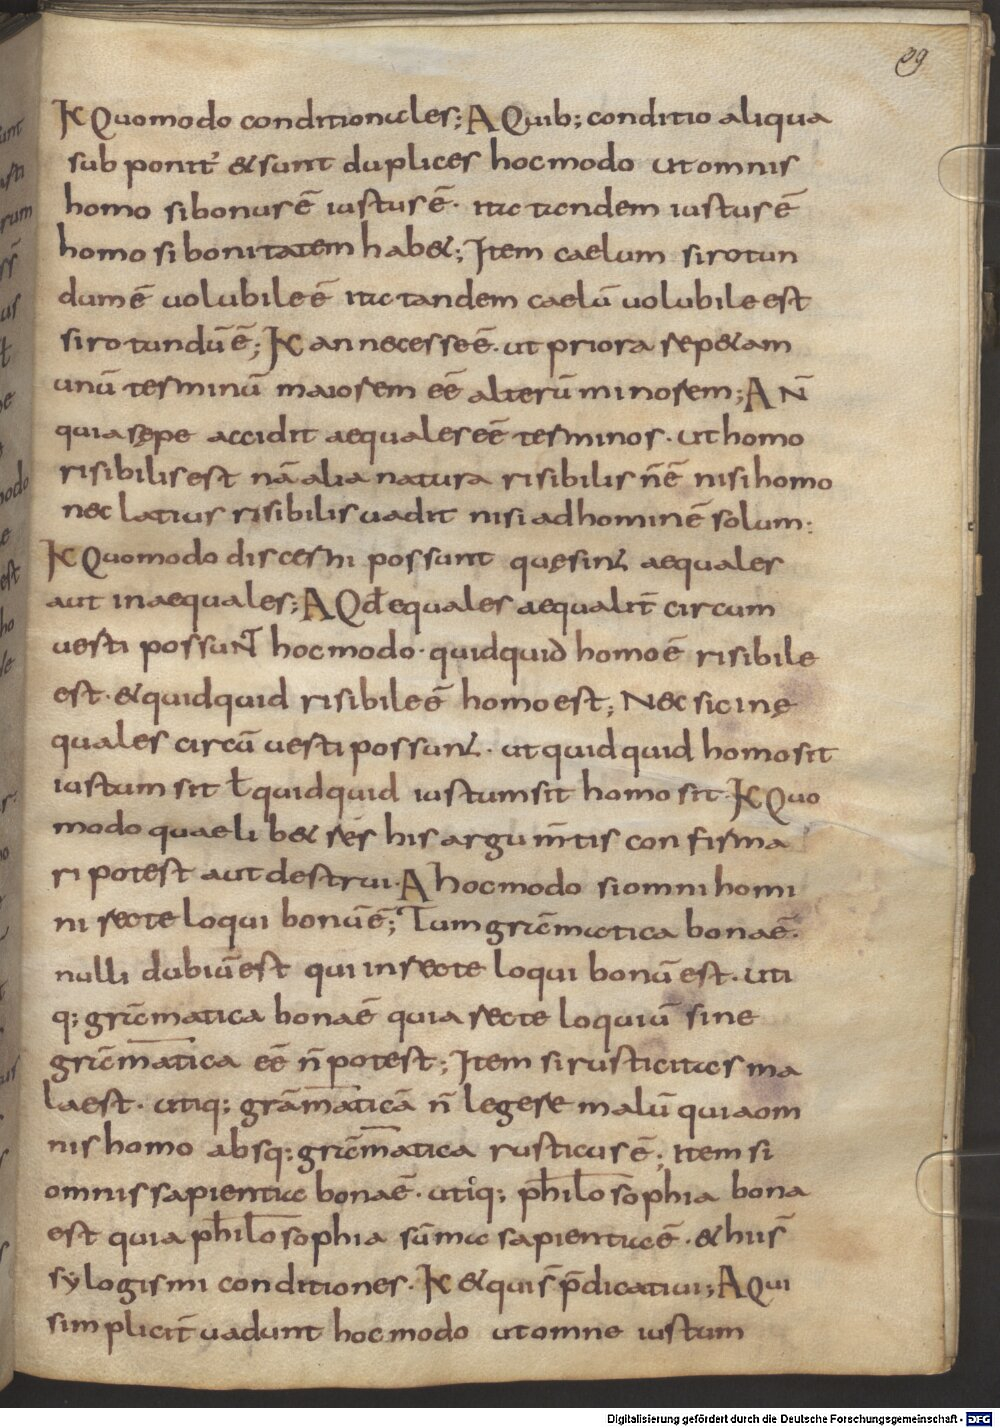 99
K Quomodo conditionales; A Quib; conditio aliqua
sub ponit̉ & sunt duplices hocmodo ut omnis
homo si bonus ē iustus ē · ita tandem iustus ē
homo si bonitatem hab&; Item caelum si rotun
dum ē uolubile ē ita tandem caelū uolubile est
si rotundū ē; K an necesse ē · ut priora sep&am
unū terminū maiorem eē alterū minorem; A N̄
quia sępe accidit aequales eē terminos · ut homo
risibilis est nā alia natura risibilis n̄ ē nisi homo
nec latius risibilis uadit nisi ad hominē solum:
K Quomodo discerni possunt quę sint aequales
aut inaequales; A Qđ equales aequalit̄ circum
uerti possunt hocmodo · quidquid homo ē risibile
est · & quidquid risibile ē homo est; Nec sic inę
quales circū uerti possunt · ut quidquid homo sit
iustum sit ł quidquid iustum sit homo sit · K Quo
modo quaelib& res his argum̄tis confirma
ri potest aut destrui · A hocmodo si omni homi
ni recte loqui bonū ē; Tum grāmatica bona ē ·
nulli dubiū est quin recte loqui bonū est · uti
q; grāmatica bona ē quia recte loquiū sine
grāmatica eē n̄ potest; Item si rusticitas ma
la est · utiq; grāmaticā n̄ legere malū quia om
nis homo absq; grāmatica rusticus ē; Item si
omnis sapientia bona ē · utiq; philosophia bona
est quia philosophia sūma sapientia ē · & hii s̄
sylogismi conditiones · K & qui s̄ p̄dicatiui; A Qui
simplicit̄ uadunt hocmodo ut omne iustum
Digitalisierung gefördert durch die Deutsche Forschungsgemeinschaft - DFG